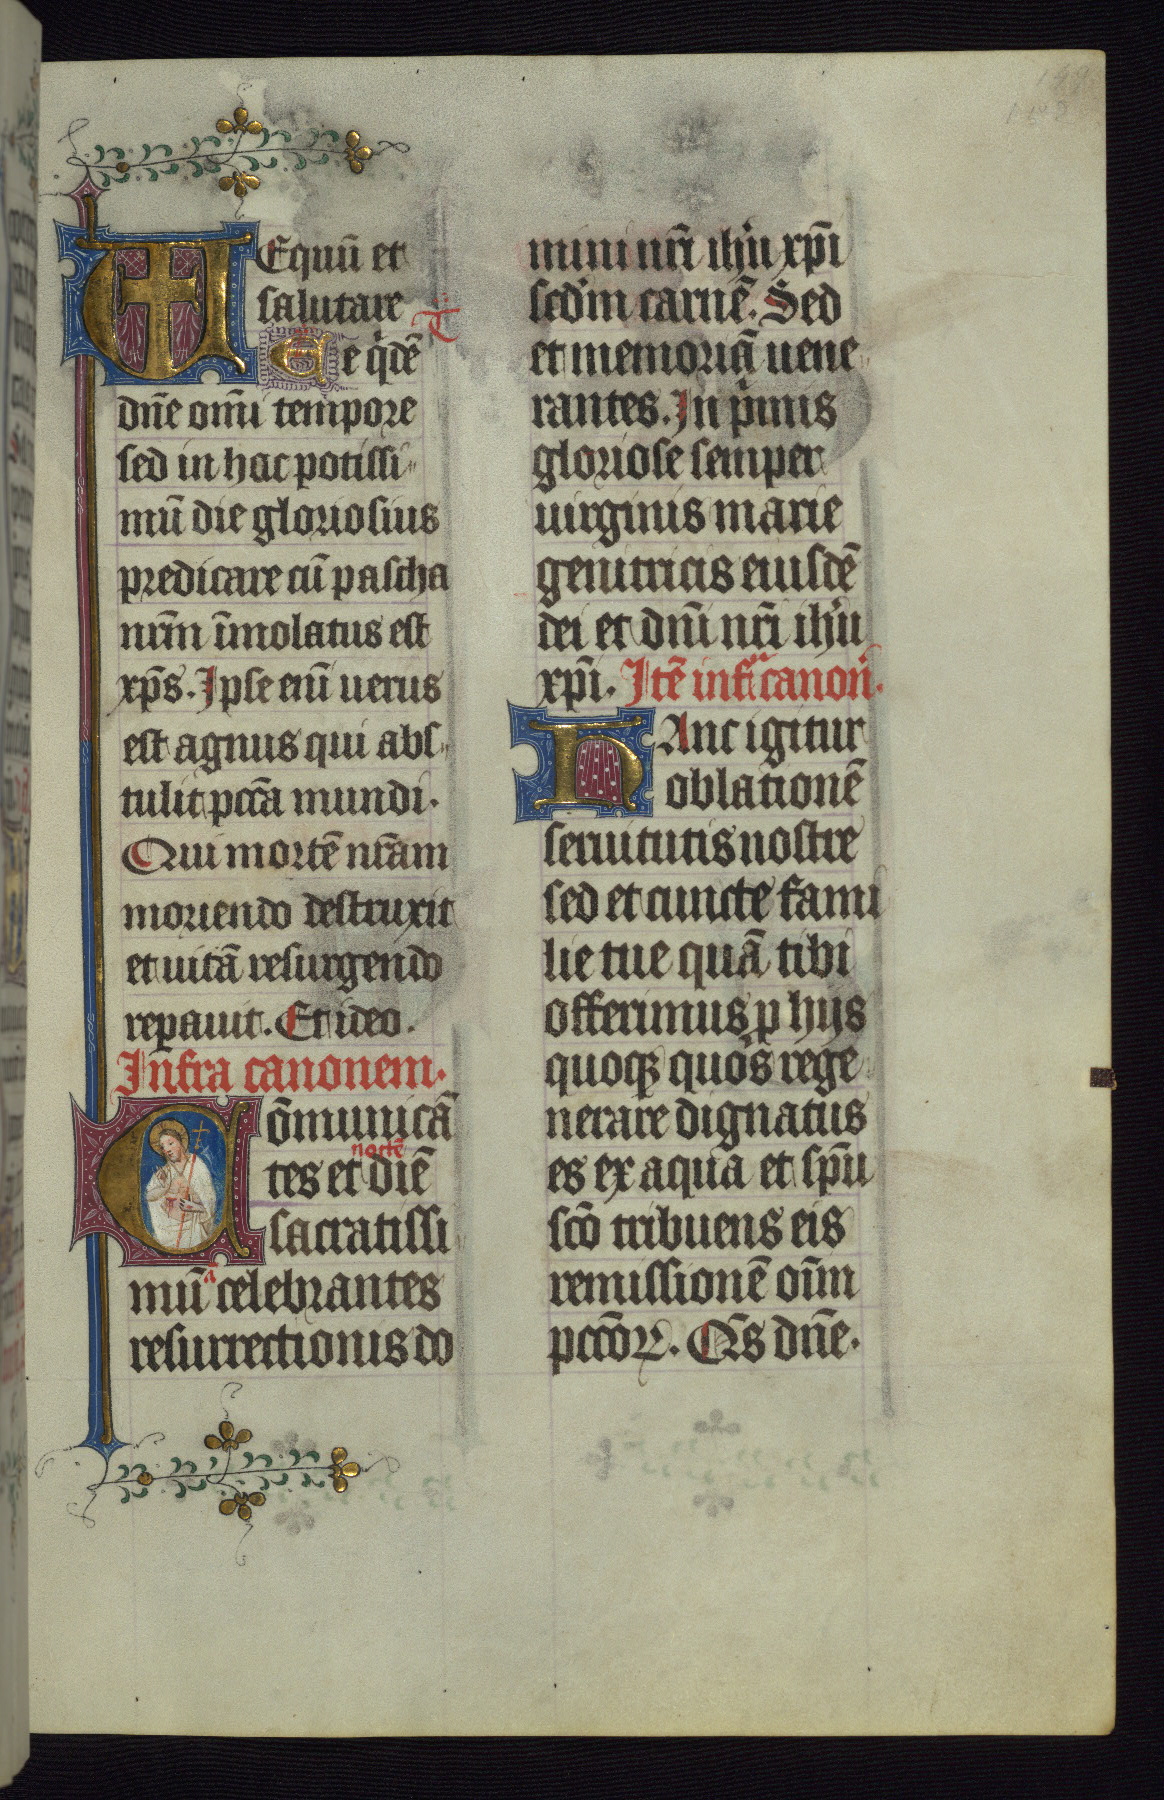 UEquū et
salutare
Te qͥdē
dn̄e om̄i tempore
sed in hac potissi-
mū die gloriosius
predicare cū pascha
nr̄m īmolatus est
xp̄s. Ipse eni̅ uerus
est agnus qui abs-
tulit pcc̄a mundi.
Qui mortē nr̄am
moriendo destruxit
et uitā resurgendo
repauit. Et ideo.
Infra canonem.
Cōmunicā
noctē
tes et diē
sacratissi
mū celebrantes
resurrectionis do
mini nr̄i ih̄u xp̄i
scd̄m carnē. Sed
et memoriā uene
rantes. In pͥmis
gloriose semper
uirginis marie
genitricis eiusdē
dei et dn̄i nr̄i ih̄u
xp̄i. Itē infͣ canoṅ.
HAnc igitur
oblationē
seruitutis nostre
sed et cuncte fami
lie tue quā tibi
offerimus ꝑ hijs
quoqꝫ quos rege
nerare dignatus
es ex aqua et sp̄u
sc̄o tribuens eis
remissionē om̄m
pcc̄oꝝ. Qs̄ dn̄e.